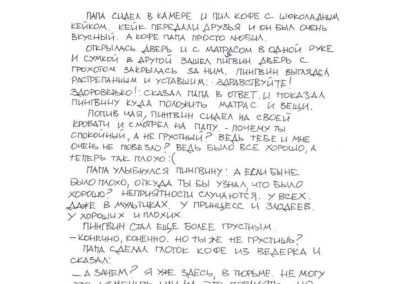 ПАПА СИДЕЛ В КАМЕРЕ И ПИЛ КОФЕ С ШОКОЛАДНЫМ
КЕЙКОМ. КЕЙК ПЕРЕДАЛИ ДРУЗЬЯ И ОН БЫЛ ОЧЕНЬ
ВКУСНЫЙ. А КОФЕ ПАПА ПРОСТО ЛЮБИЛ.
ОТКРЫЛАСЬ ДВЕРЬ И С МАТРАСОМ В ОДНОЙ РУКЕ
И СУМКОЙ В ДРУГОЙ ЗАШЕЛ ПИГВИН. ДВЕРЬ С
ГРОХОТОМ ЗАКРЫЛАСЬ ЗА НИМ. ПИНГВИН ВЫГЛЯДЕЛ
РАСТРЕПАННЫМ И УСТАВШИМ. - ЗДРАВСТВУЙТЕ!
ЗДОРОВЕНЬКО! - СКАЗАЛ ПАПА В ОТВЕТ И ПОКАЗАЛ
ПИНГВИНУ КУДА ПОЛОЖИТЬ МАТРАС И ВЕЩИ.
ПОПИВ ЧАЯ, ПИНГВИН СИДЕЛ НА СВОЕЙ
КРОВАТИ И СМОТРЕЛ НА ПАПУ. - ПОЧЕМУ ТЫ
СПОКОЙНЫЙ, А НЕ ГРУСТНЫЙ? ВЕДЬ ТЕБЕ И МНЕ
ОЧЕНЬ НЕ ПОВЕЗЛО? ВЕДЬ БЫЛО ВСЕ ХОРОШО, А
ТЕПЕРЬ ТАК ПЛОХО :(
ПАПА УЛЫБНУЛСЯ ПИНГВИНУ: А ЕСЛИ БЫ НЕ
БЫЛО ПЛОХО, ОТКУДА ТЫ БЫ УЗНАЛ, ЧТО БЫЛО
ХОРОШО? НЕПРИЯТНОСТИ СЛУЧАЮТСЯ. У ВСЕХ.
ДАЖЕ В МУЛЬТИКАХ. У ПРИНЦЕСС И ЗЛОДЕЕВ.
У ХОРОШИХ И ПЛОХИХ.
ПИНГВИН СТАЛ ЕЩЕ БОЛЕЕ ГРУСТНЫМ.
- КОНЕЧНО, КОНЕЧНО. НО ТЫ ЖЕ НЕ ГРУСТИШЬ?
ПАПА СДЕЛАЛ ГЛОТОК КОФЕ ИЗ ВЕДЕРКА И
СКАЗАЛ:
- А ЗАЧЕМ? Я УЖЕ ЗДЕСЬ, В ТЮРЬМЕ. НЕ МОГУ